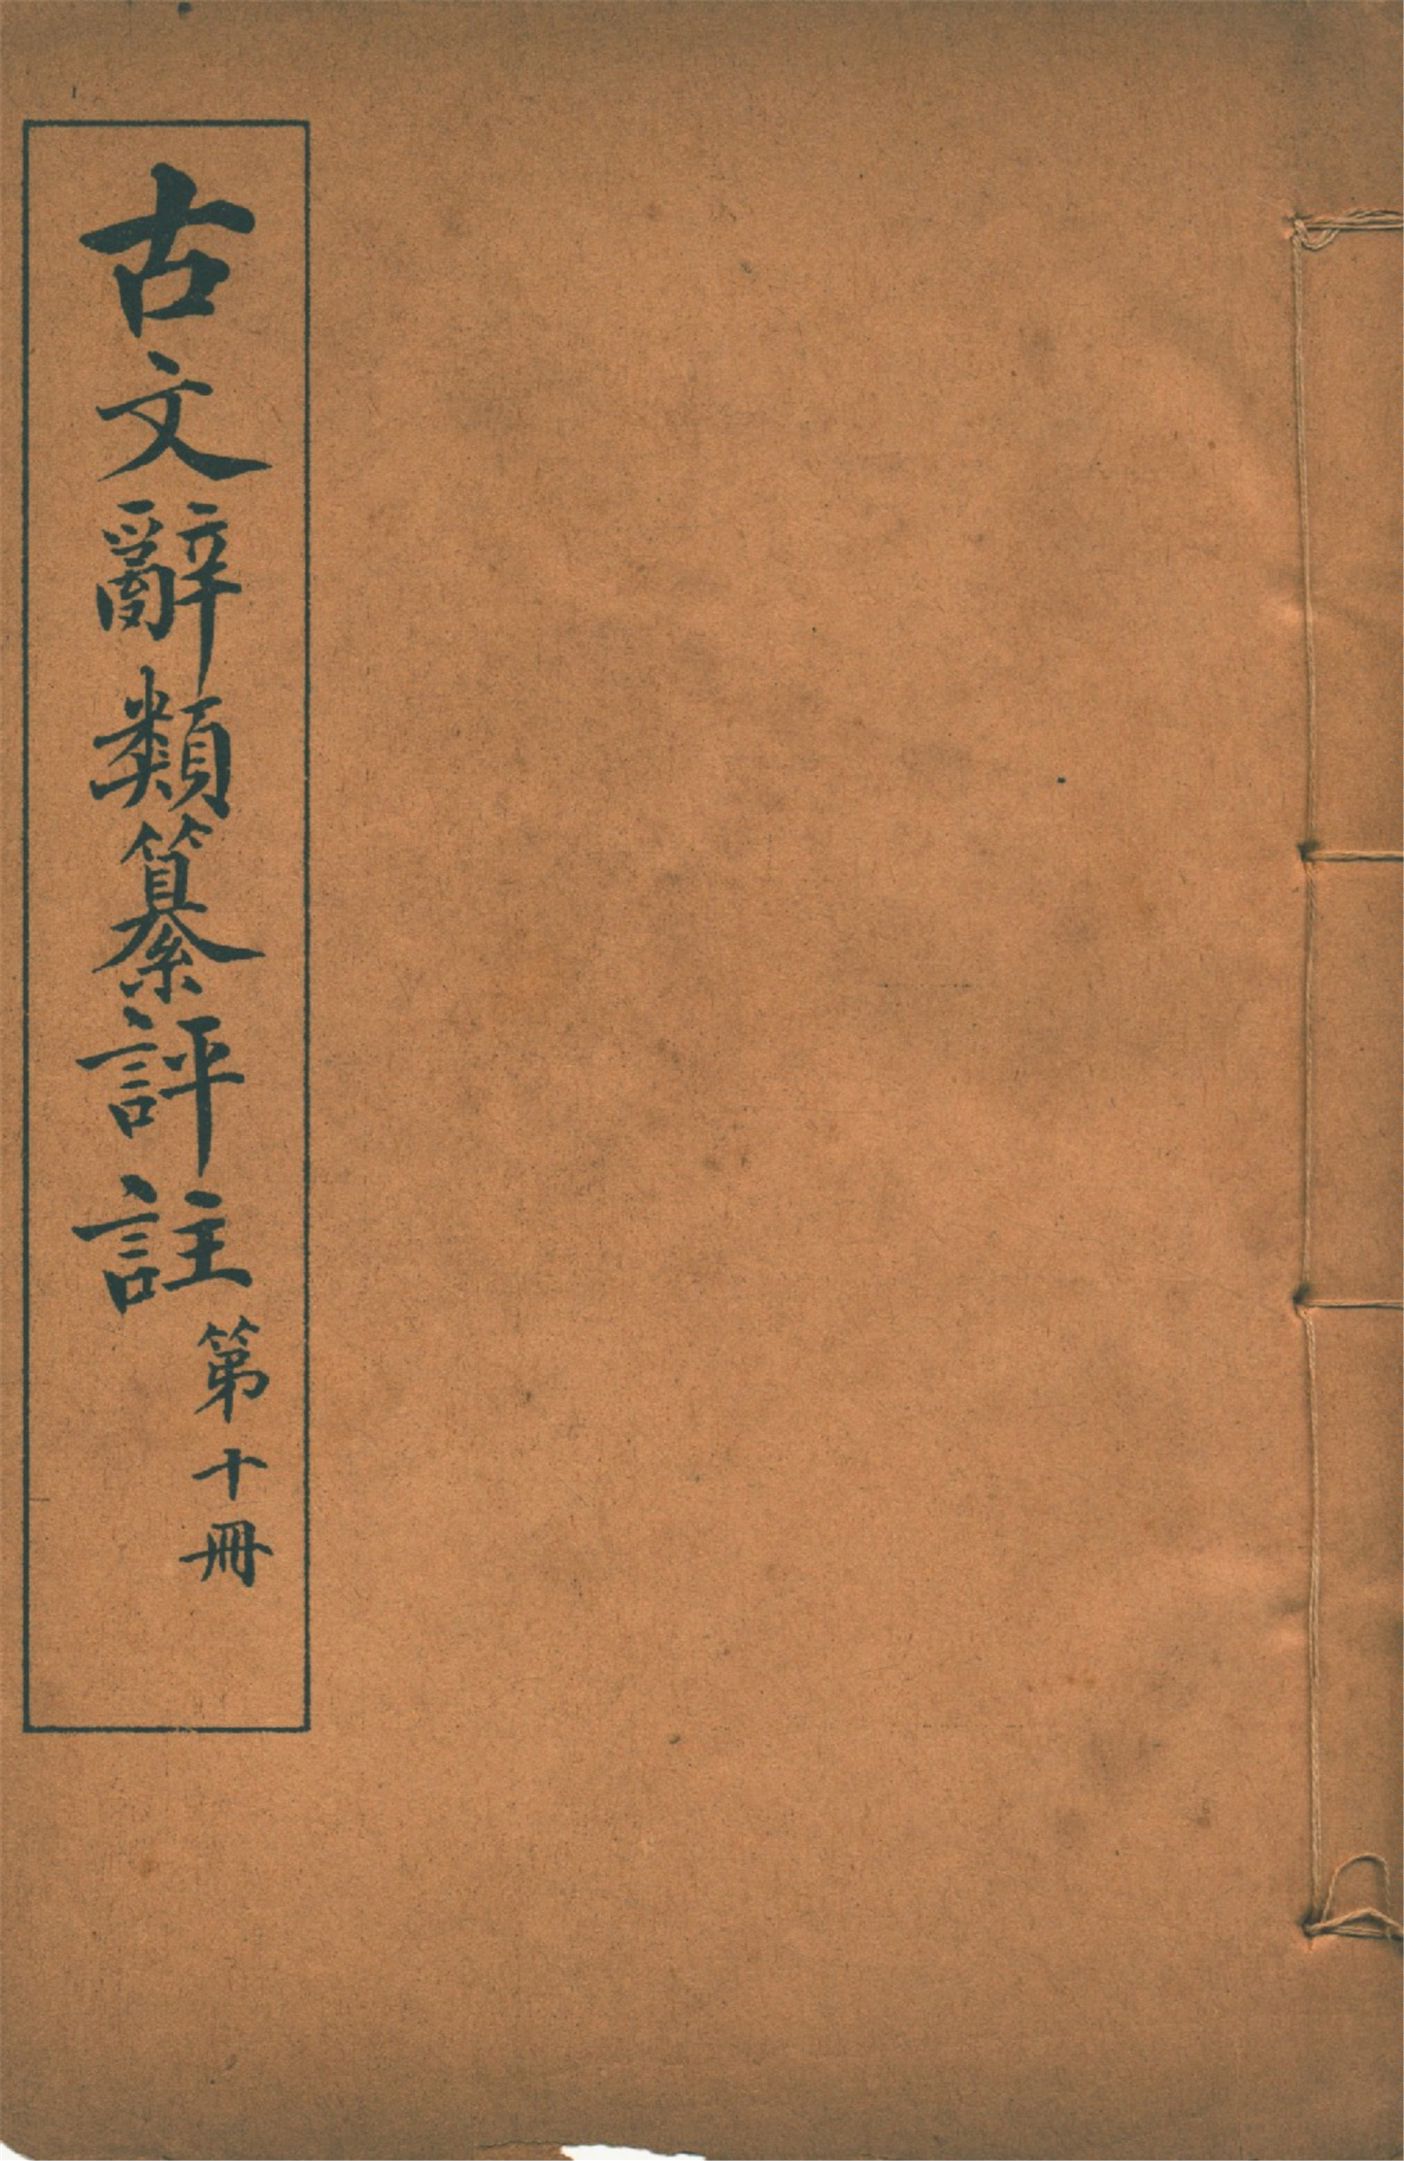 古文辭類纂評註
第十冊